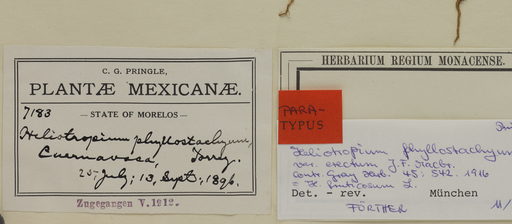 C. G. PRINGLE,
PLANTÆ MEXICANÆ.
7183
— STATE OF MORELOS —
Heliotropium phyllostachyum,
Torr.
Cuernavaca,
25 July; 13 Sept., 1896.
Zugegangen V.1912.
HERBARIUM REGIUM MONACENSE.
PARA-
TYPUS
Heliotropium phyllostachyum
var. erectum J.F. Macbr.
Contr. Gray Herb. 45: 542. 1916
= H. fruticosum L.
Det. - rev. München
FÖRTHER 11/